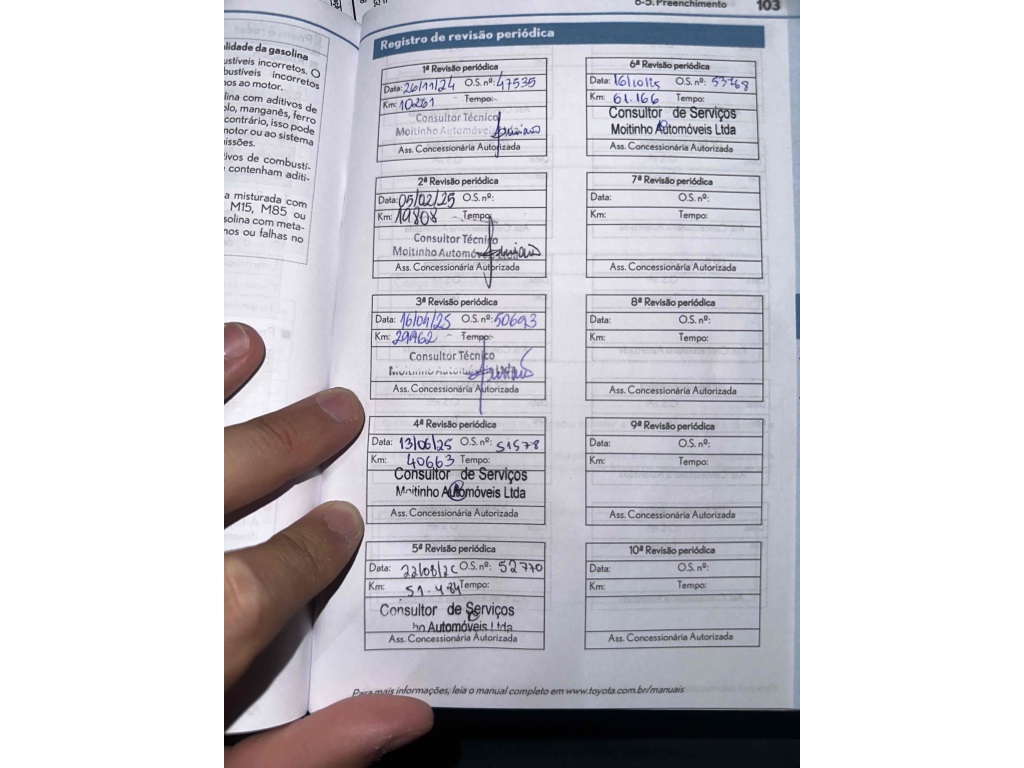 6-3. Preenchimento 103
lidade da gasolina
ustíveis incorretos. O
bustíveis incorretos
nos ao motor.
lina com aditivos de
olo, manganês, ferro
contrário, isso pode
motor ou ao sistema
issões.
ivos de combustí-
contenham aditi-
a misturada com
M15, M85 ou
solina com meta-
nos ou falhas no
Registro de revisão periódica
1ª Revisão periódica
Data: 26/11/24 O.S. nº: 47535
Km: 10261 Tempo: -
Consultor Técnico
Moitinho Automóveis
Ass. Concessionária Autorizada
2ª Revisão periódica
Data: 05/02/25 O.S. nº:
Km: 19808 - Tempo:
Consultor Técnico
Moitinho Automóveis
Ass. Concessionária Autorizada
3ª Revisão periódica
Data: 16/04/25 O.S. nº: 50693
Km: 29962 - Tempo:
Consultor Técnico
Moitinho Automóveis Ltda
Ass. Concessionária Autorizada
4ª Revisão periódica
Data: 13/06/25 O.S. nº: 51578
Km: 40663 Tempo:
Consultor de Serviços
Moitinho Automóveis Ltda
Ass. Concessionária Autorizada
5ª Revisão periódica
Data: 22/08/25 O.S. nº: 52770
Km: 51.484 Tempo:
Consultor de Serviços
ho Automóveis Ltda
Ass. Concessionária Autorizada
6ª Revisão periódica
Data: 16/10/25 O.S. nº: 53768
Km: 61.166 Tempo:
Consultor de Serviços
Moitinho Automóveis Ltda
Ass. Concessionária Autorizada
7ª Revisão periódica
Data: O.S. nº:
Km: Tempo:
Ass. Concessionária Autorizada
8ª Revisão periódica
Data: O.S. nº:
Km: Tempo:
Ass. Concessionária Autorizada
9ª Revisão periódica
Data: O.S. nº:
Km: Tempo:
Ass. Concessionária Autorizada
10ª Revisão periódica
Data: O.S. nº:
Km: Tempo:
Ass. Concessionária Autorizada
Para mais informações, leia o manual completo em www.toyota.com.br/manuais